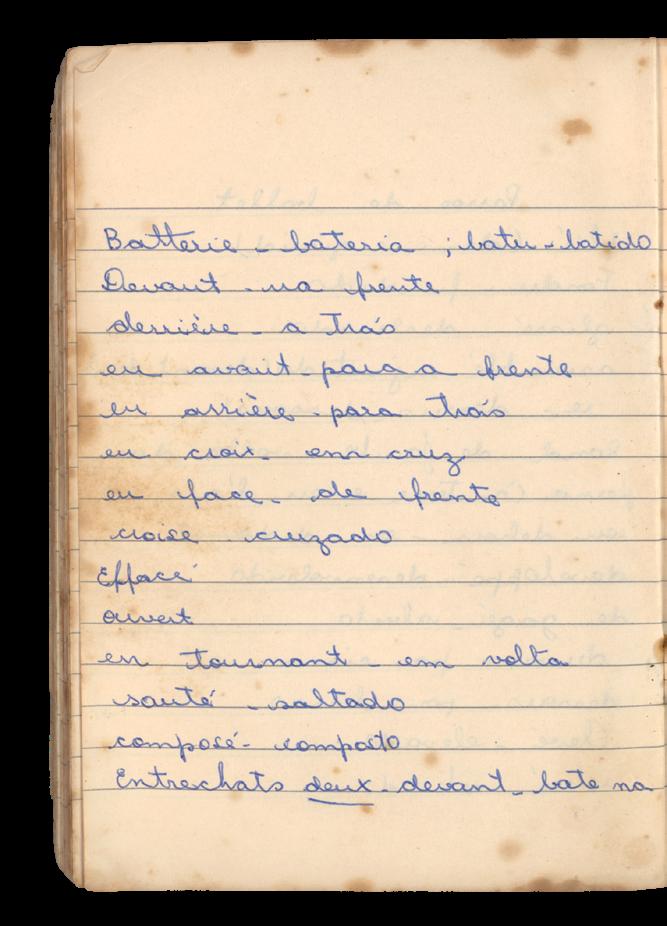 Batterie - bateria ; batu - batido
Devant - na frente
derrière - a trás
en avant para a frente
en arrière - para trás
en croix - em cruz
en face - de frente
croise cruzado
Effacé
ouvert
en tournant - em volta
sauté - saltado
composé - composto
Entrechats deux - devant - bate na